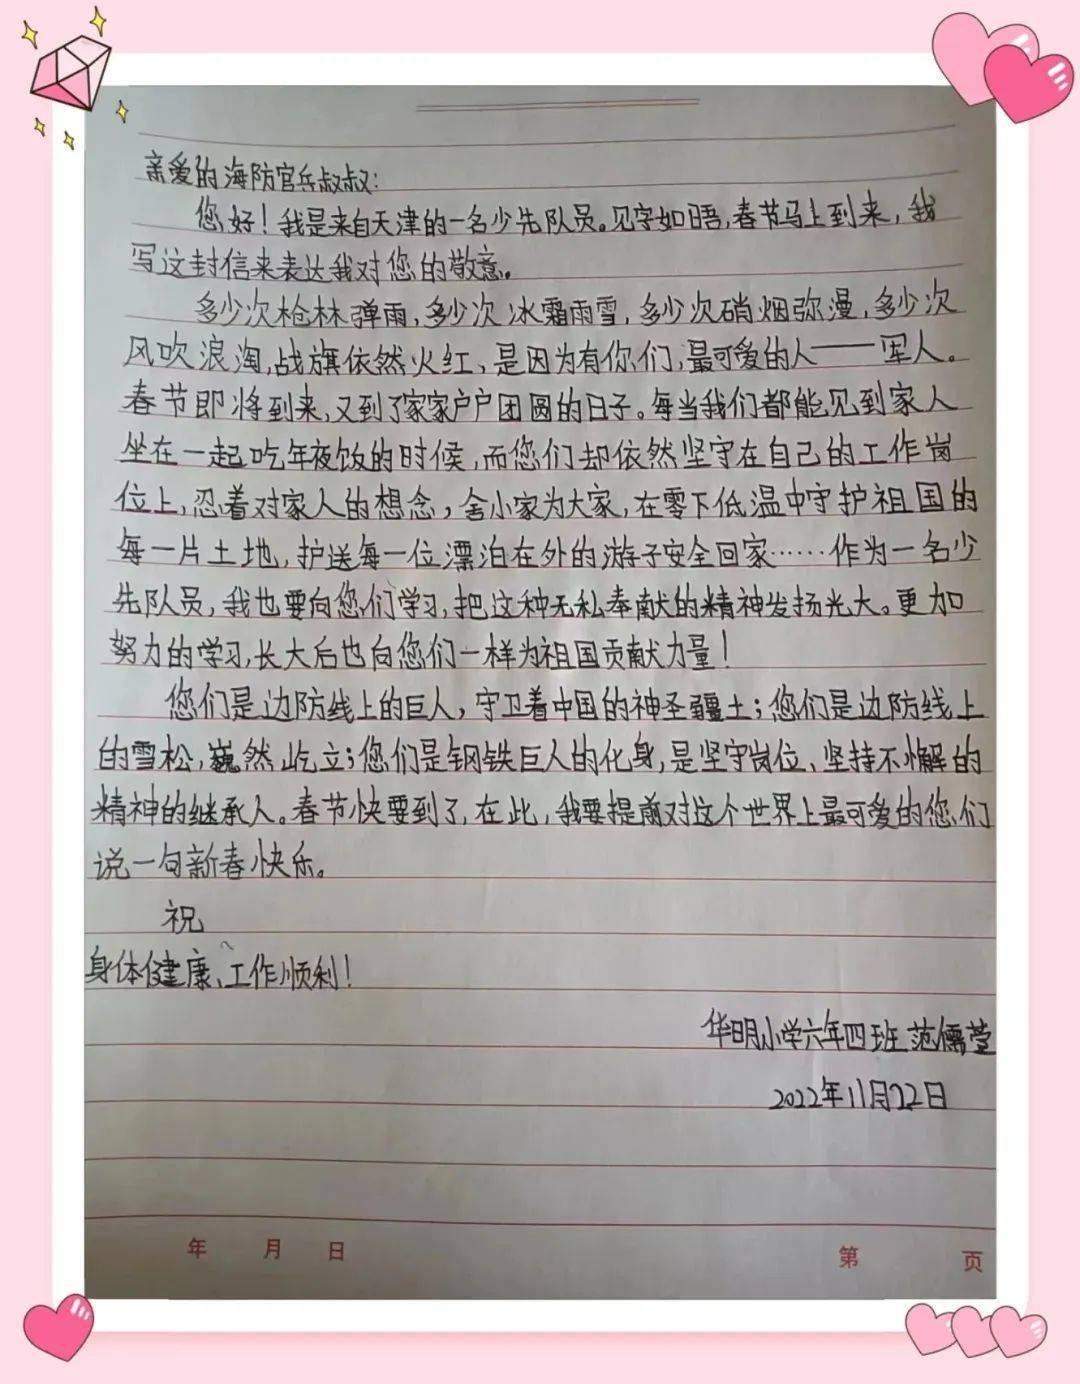 亲爱的海防官兵叔叔:
您好!我是来自天津的一名少先队员。见字如晤,春节马上到来,我
写这封信来表达我对您的敬意。
多少次枪林弹雨,多少次冰霜雨雪,多少次硝烟弥漫,多少次
风吹浪淘,战旗依然火红、是因为有你们,最可爱的人——军人。
春节即将到来,又到了家家户户团圆的日子。每当我们都能见到家人
坐在一起吃年夜饭的时候,而您们却依然坚守在自己的工作岗
位上,忍着对家人的想念,舍小家为大家,在零下低温中守护祖国的
每一片土地,护送每一位漂泊在外的游子安全回家……作为一名少
先队员,我也要向您们学习,把这种无私奉献的精神发扬光大。更加
努力的学习,长大后也向您们一样为祖国贡献力量!
您们是边防线上的巨人,守卫着中国的神圣疆土;您们是边防线上
的雪松,巍然屹立;您们是钢铁巨人的化身,是坚守岗位、坚持不懈的
精神的继承人。春节快要到了,在此,我要提前对这个世界上最可爱的您们
说一句新春快乐。
祝
身体健康、工作顺利!
华明小学六年四班 范儒萱
2022年11月22日
年 月 日 第 页